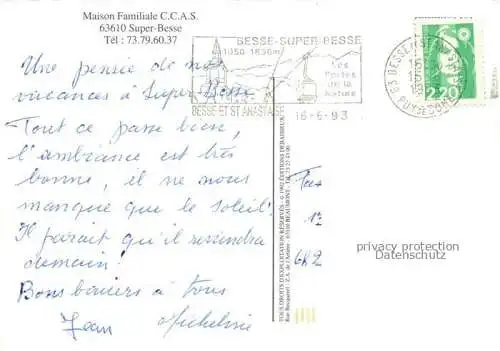 Maison Familiale C.C.A.S.
63610 Super-Besse
Tél : 73.79.60.37
Une pensée de nos
vacances à Super-Besse
Tout ce passe bien,
l'ambiance est très
bonne, il ne nous
manque que le soleil!
Il parait qu'il reviendra
demain!
Bons baisers à tous
Jean Micheline
BESSE-SUPER-BESSE
1050 1850m
Les
Portes
de la
Nature
BESSE ET ST ANASTAISE
16-6-93
63 BESSE ET ST ANASTAISE
PUY DE DOME
2,20
TOUS DROITS D'EXPLOITATION RÉSERVÉS - © 1992 ÉDITIONS DEBAISIEUX
63110 BEAUMONT
privacy protection
Datenschutz